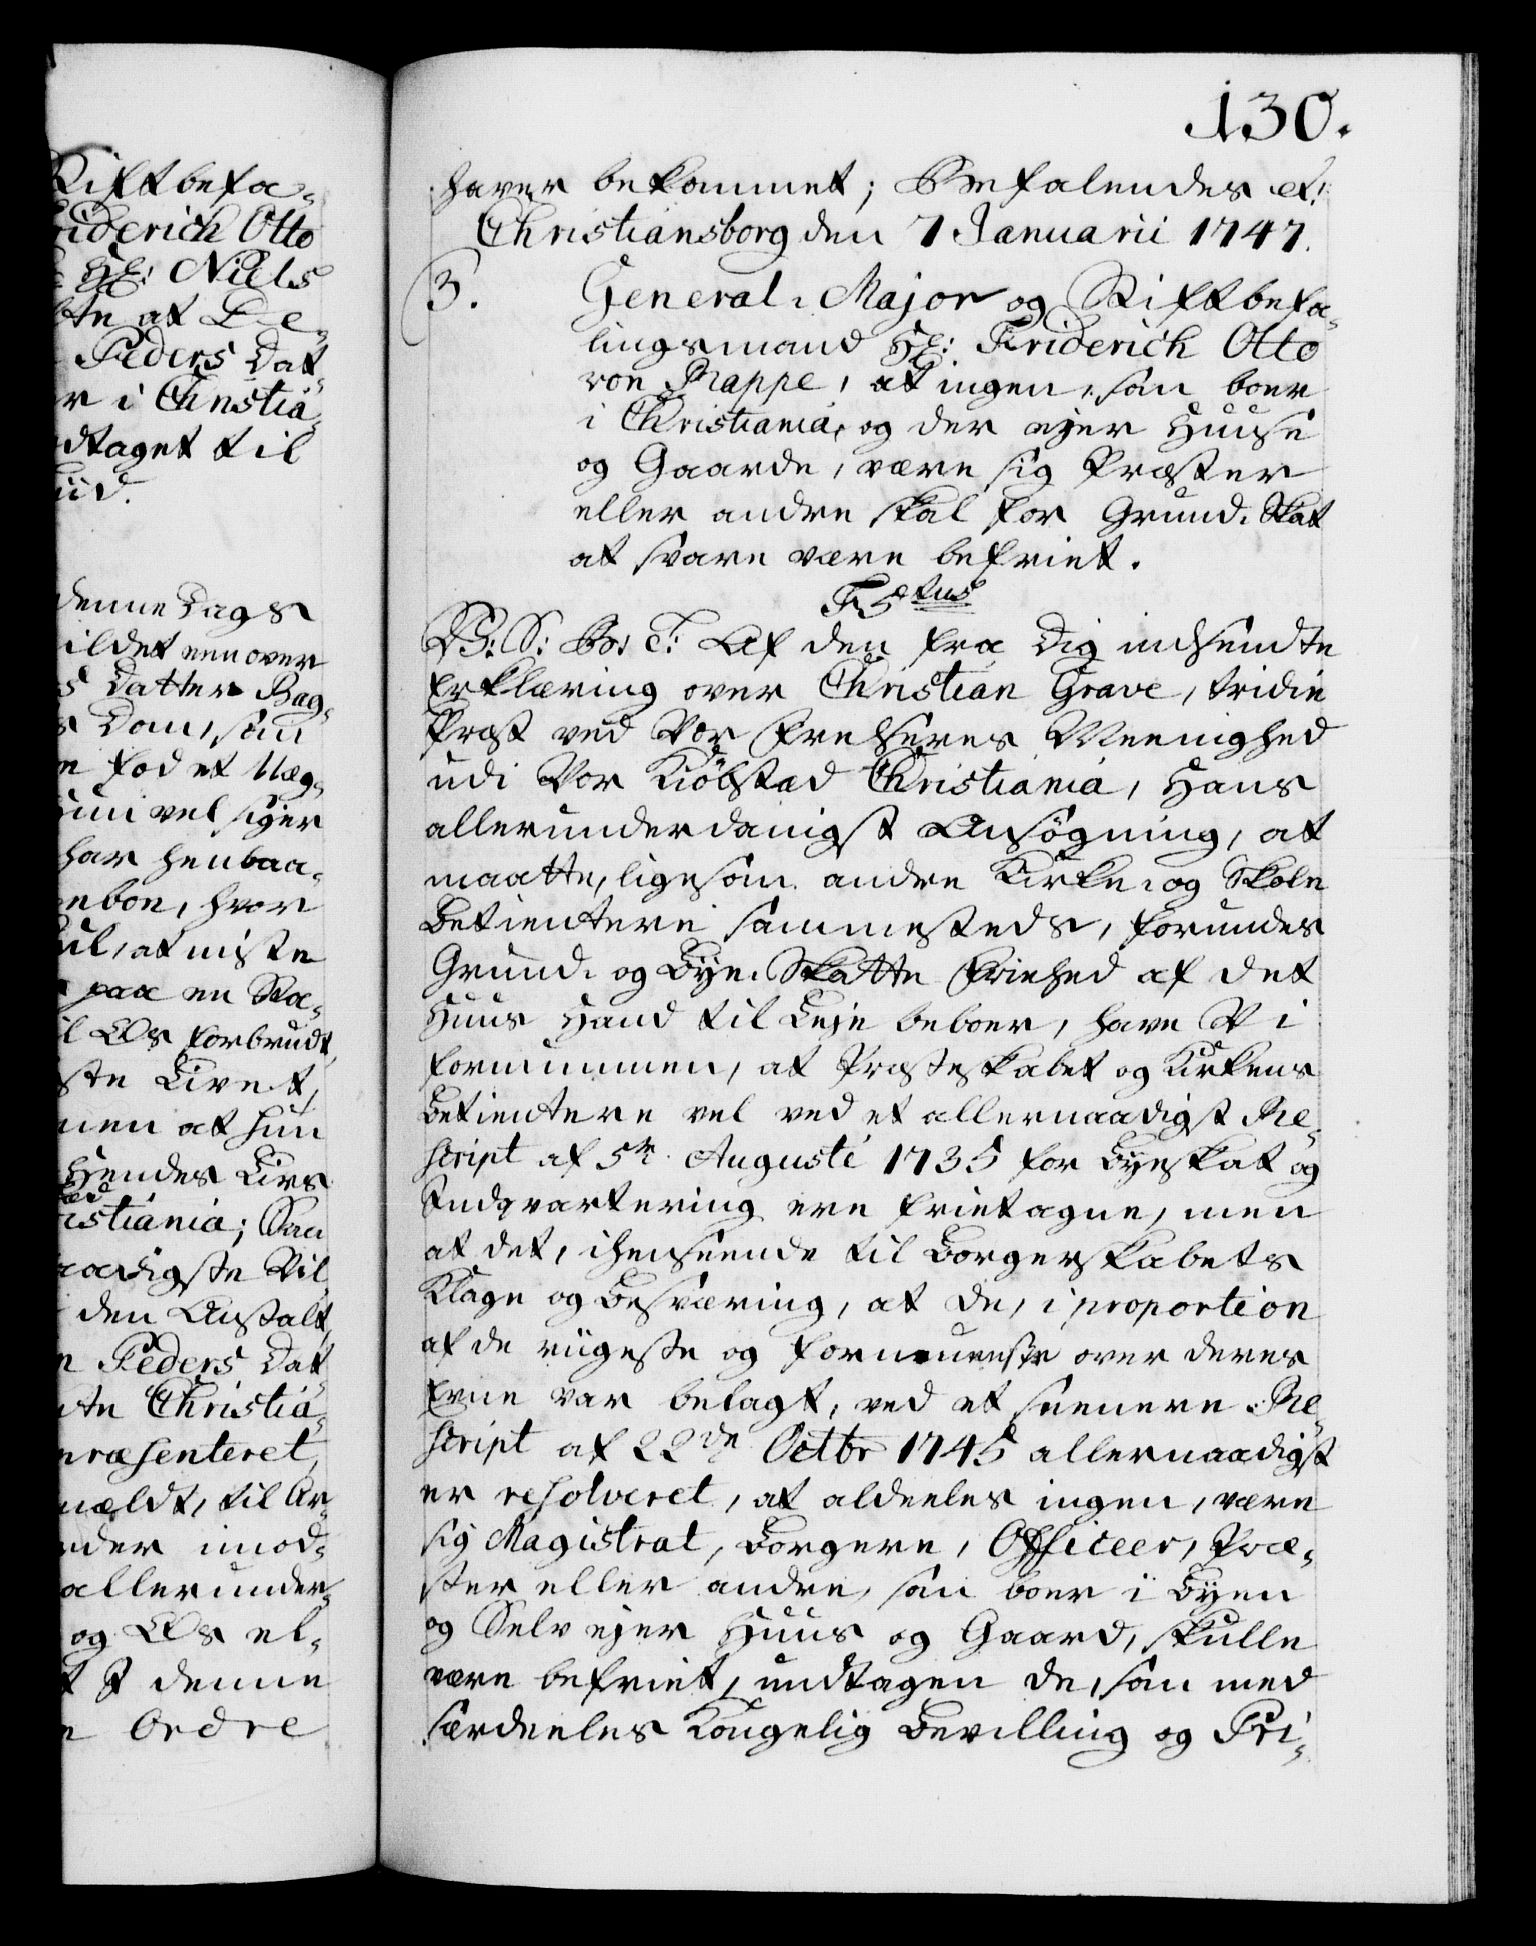 Stiftbefa-
riderich Otto
Hr: Niels
bte at De-
Peders Dat-
r i Christia-
dtaget til
iid.
denne Dags
ildet een over
s Datter Bag-
s Dom, som
n fod et Uæg-
Hun vel siger
har henbaa-
nbon, hvor
uul, at miste
paa en Sta-
l Os forbrudt,
ste Livet,
men at hun
Hendes Livs
ristiania; Saa
naadigste Vil
den Anstalt,
n Peders Dat-
ute Christia-
præsenteret,
mældt, til Ar-
eder imod-
allerunder-
og Os el-
t I denne
n Ordre
130.
haver bekommet; Befalendes etc:
Christiansborg den 7 Januarii 1747.
3. General-Major og Stiftbefa-
lingsmand Hr: Friderich Otto
von Rappe, at ingen, som boer
i Christiania, og der ejer Huuse
og Gaarde, være sig Præster
eller andre skal for Grund-Skat
at svare være befriet.
F5tus
V: S: Bo: T: Af den fra Dig indsendte
Erklæring over Christian Grave, tridie
Præst ved Vor Frelseres Meenighed
udi Vor Kiöbstad Christiania, Hans
allerunderdanigst Ansögning, at
maatte, ligesom andre Kirke- og Skole
Betientere sammesteds, forundes
Grund- og Bye-Skatte Friehed af det
Huus Hand til Leje beboer, have Vi
fornummen, at Præsteskabet og Kirkens
Betientere vel ved et allernaadigst Re-
script af 5te Augusti 1735 for Byeskat og
Indqvartering ere frietagne, men
at det, ihenseende til Borgerskabets
Klage og Besværing, at De, i proportion
af de riigeste og fornemste over deres
Evne var belagt, ved et seenere Re-
script af 22de Octbr 1745 allernaadigst
er resolveret, at aldeeles ingen, være
sig Magistrat, Borgere, Officeer, Præ-
ster eller andre, som boer i Byen
og Selv ejer Huus og Gaard, skulle
være befriet, undtagen de, som med
særdeeles Kongelig Bevilling og Pri-